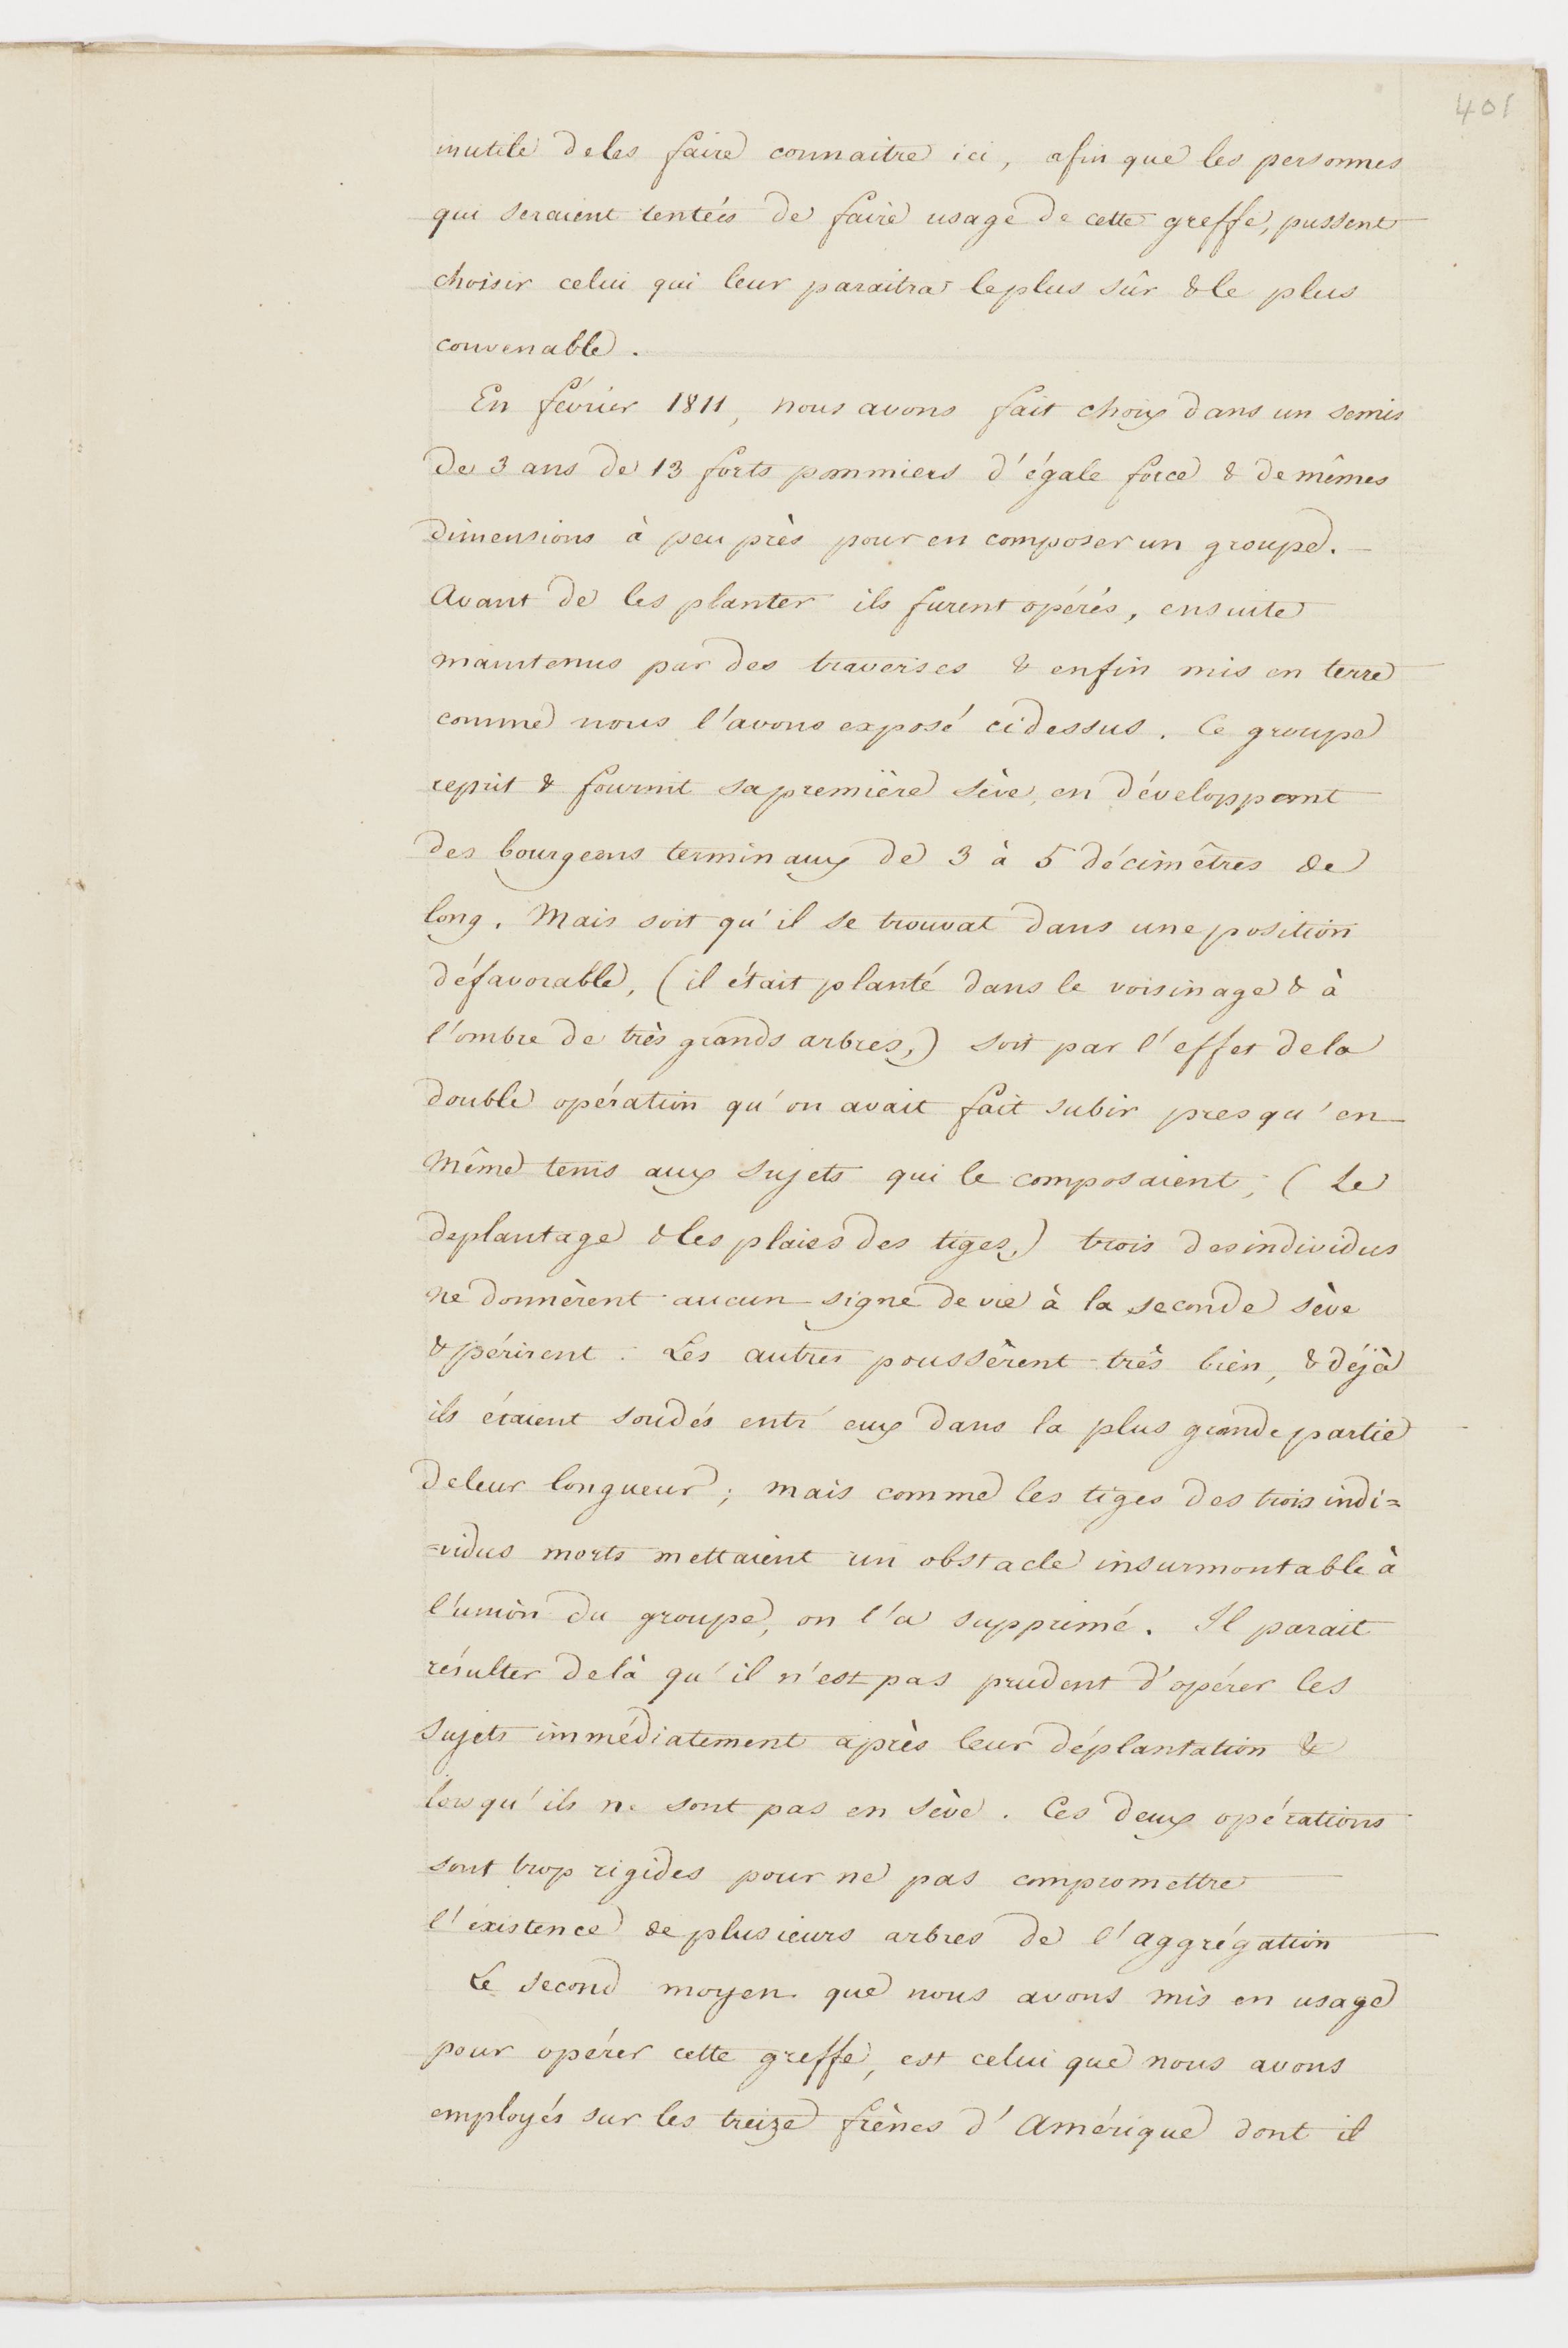 401
inutile de les faire connaitre ici, afin que les personnes
qui seraient tentées de faire usage de cette greffe, pussent
choisir celui qui leur paraitra le plus sûr & le plus
convenable.
En février 1811, nous avons fait choix dans un semis
de 3 ans de 13 forts pommiers d'égale force & de mêmes
dimensions à peu près pour en composer un groupe.
Avant de les planter ils furent opérés, ensuite
maintenus par des traverses & enfin mis en terre
comme nous l'avons exposé cidessus. Ce groupe
reprit & fournit sa première sève, en développant
des bourgeons terminaux de 3 à 5 décimêtres de
long. Mais soit qu'il se trouvat dans une position
défavorable, (il était planté dans le voisinage & à
l'ombre de très grands arbres,) soit par l'effet de la
double opération qu'on avait fait subir presqu'en
même tems aux sujets qui le composaient, (Le
deplantage & les plaies des tiges,) trois des individus
ne donnèrent aucun signe de vie à la seconde sève
& périrent. Les autres poussèrent très bien, & déjà
ils étaient soudés entr'eux dans la plus grande partie
de leur longueur; mais comme les tiges des trois indi=
=vidus morts mettaient un obstacle insurmontable à
l'union du groupe, on l'a supprimé. Il parait
résulter delà qu'il n'est pas prudent d'opérer les
sujets immédiatement après leur déplantation &
lorsqu'ils ne sont pas en sève. Ces deux opérations
sont trop rigides pour ne pas compromettre
l'éxistence de plusieurs arbres de l'aggrégation
Le second moyen que nous avons mis en usage
pour opérer cette greffe, est celui que nous avons
employés sur les treize frènes d'Amérique dont il